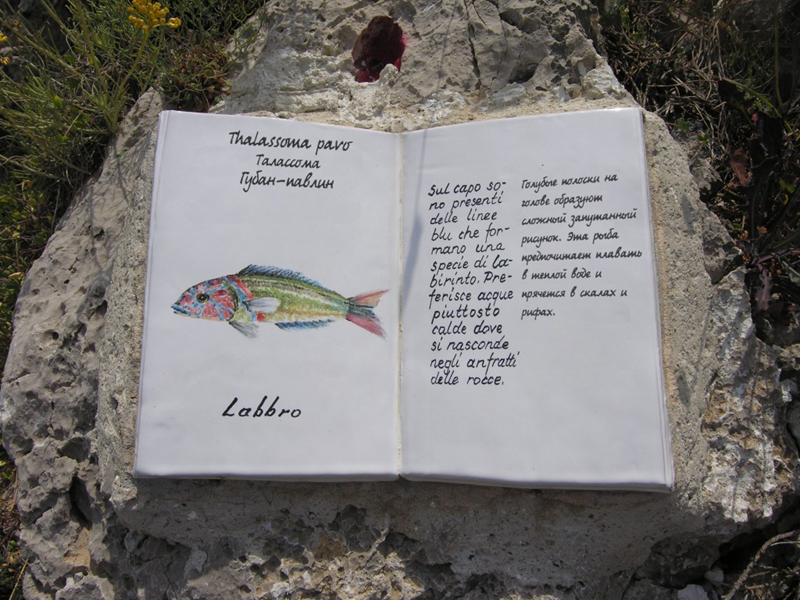 Thalassoma pavo
Талассома
Губан-павлин
Labbro
Sul capo so-
no presenti
delle linee
blu che for-
mano una
specie di la-
birinto. Pre-
ferisce acque
piuttosto
calde dove
si nasconde
negli anfratti
delle rocce.
Голубые полоски на
голове образуют
сложный запутанный
рисунок. Эта рыба
предпочитает плавать
в теплой воде и
прячется в скалах и
рифах.